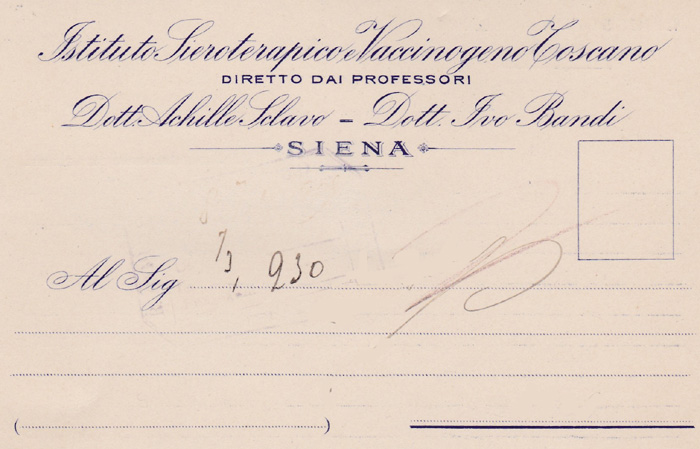 Istituto Sieroterapico e Vaccinogeno Toscano
DIRETTO DAI PROFESSORI
Dott. Achille Sclavo – Dott. Ivo Bandi
SIENA
Al Sig 930
( )